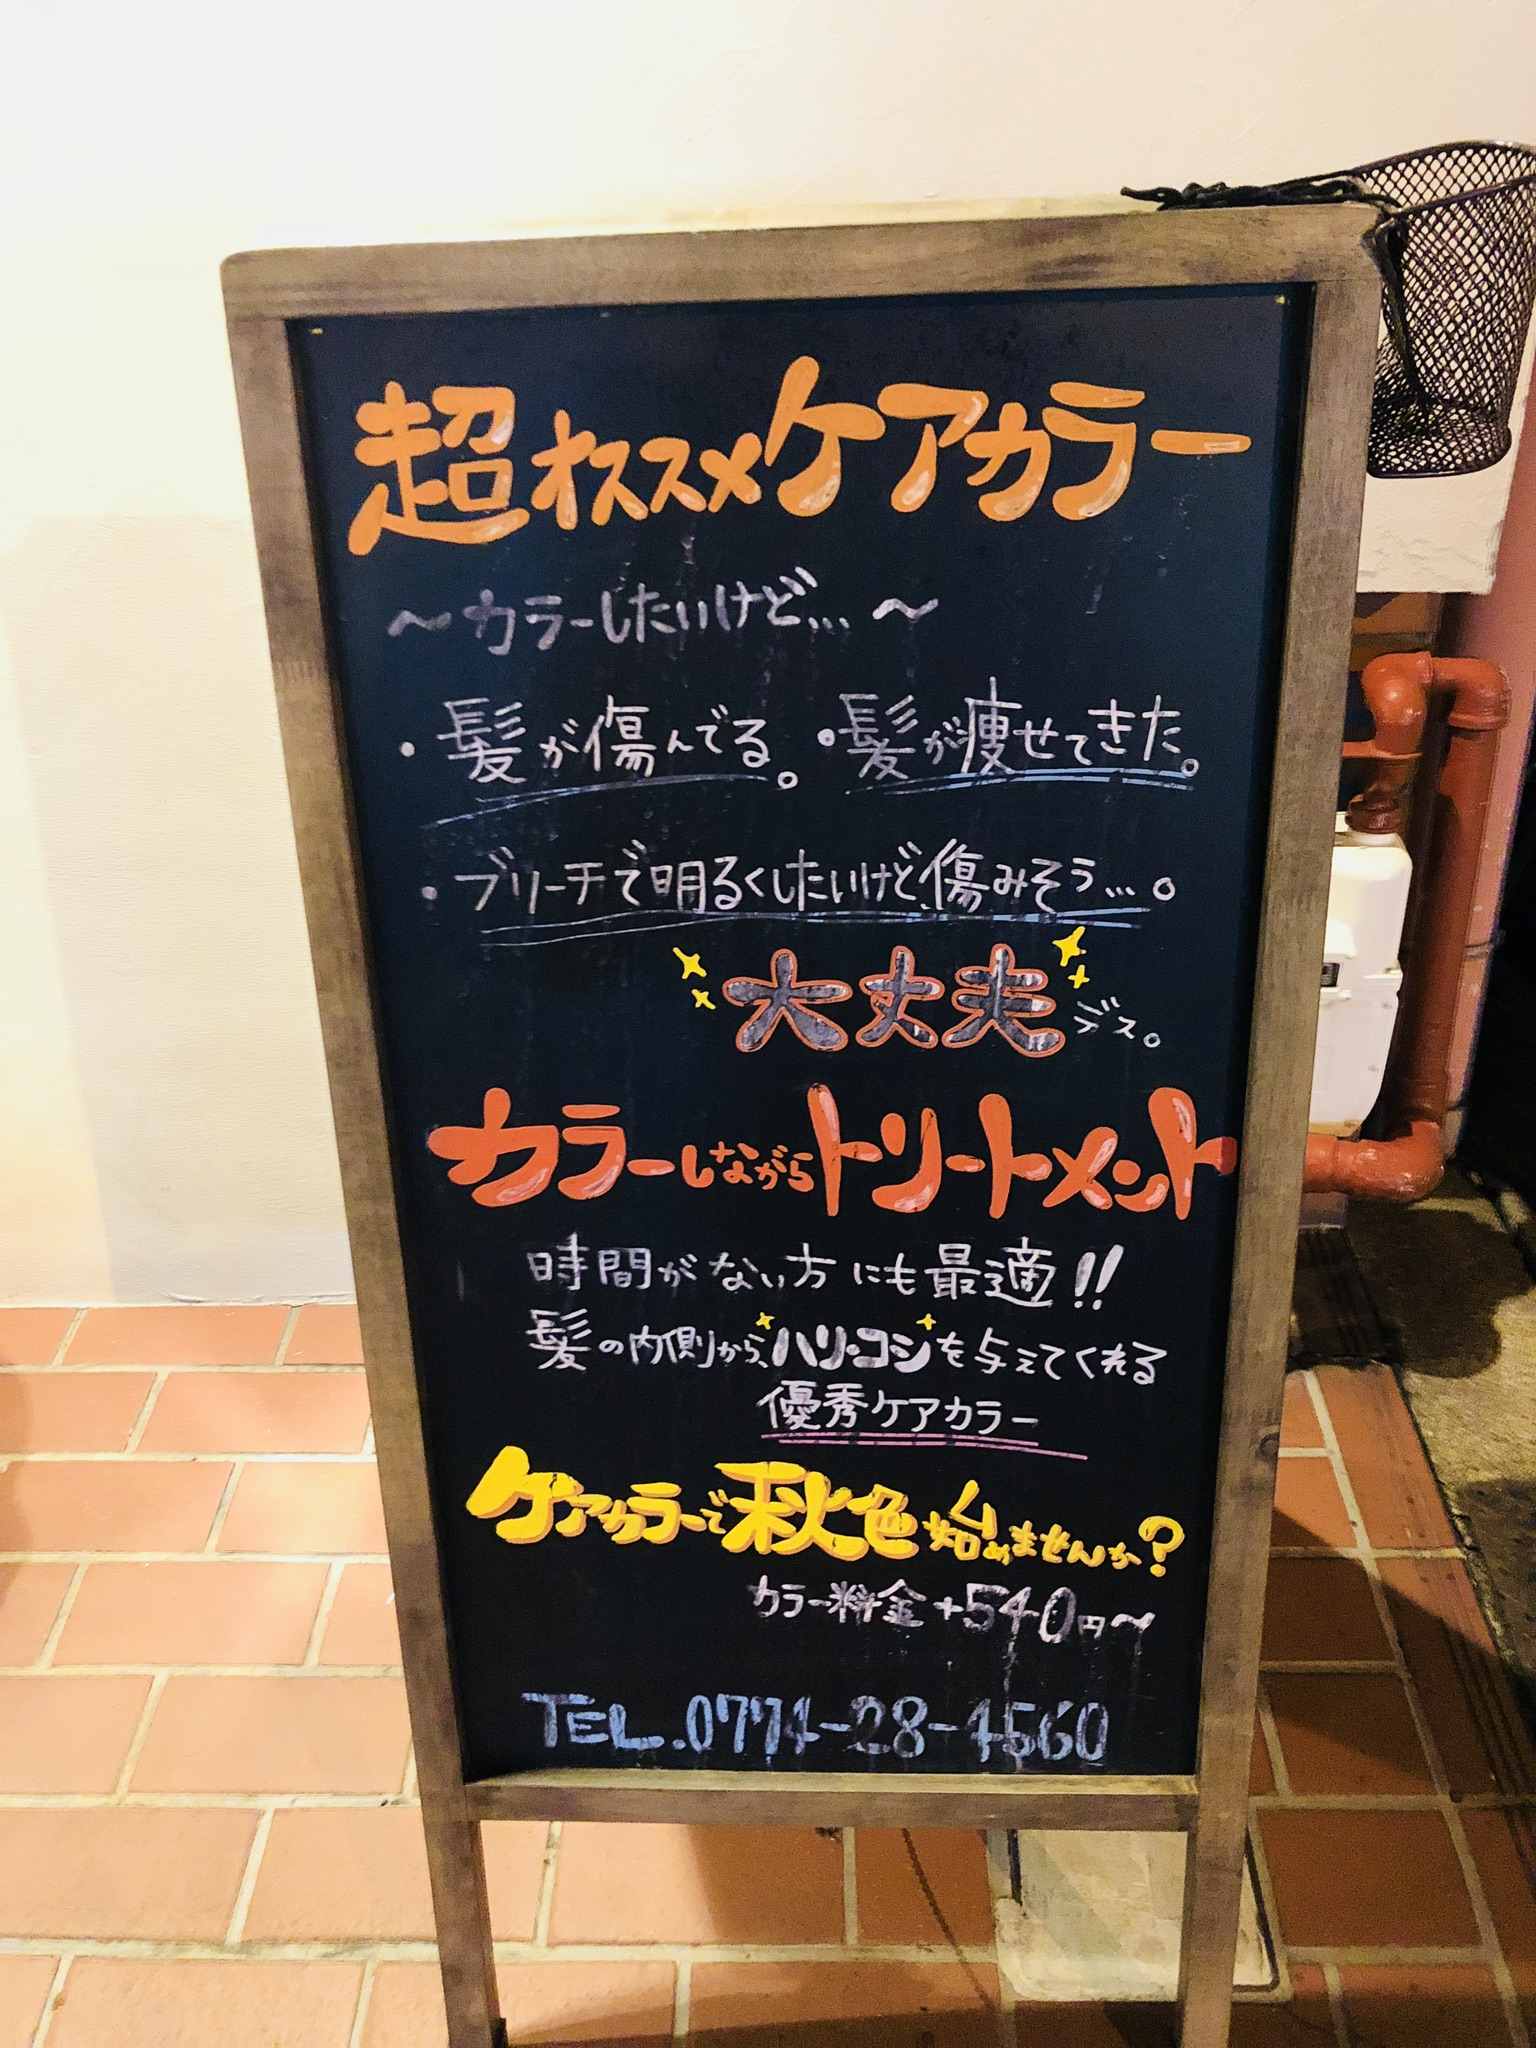 超オススメケアカラー
〜カラーしたいけど...〜
・髪が傷んでる。・髪が痩せてきた。
・ブリーチで明るくしたいけど、傷みそう...。
大丈夫デス。
カラーしながらトリートメント
時間がない方にも最適!!
髪の内側から、ハリ・コシを与えてくれる
優秀ケアカラー
ケアカラーで秋色始めませんか?
カラー料金+540円〜
TEL.0774-28-4560